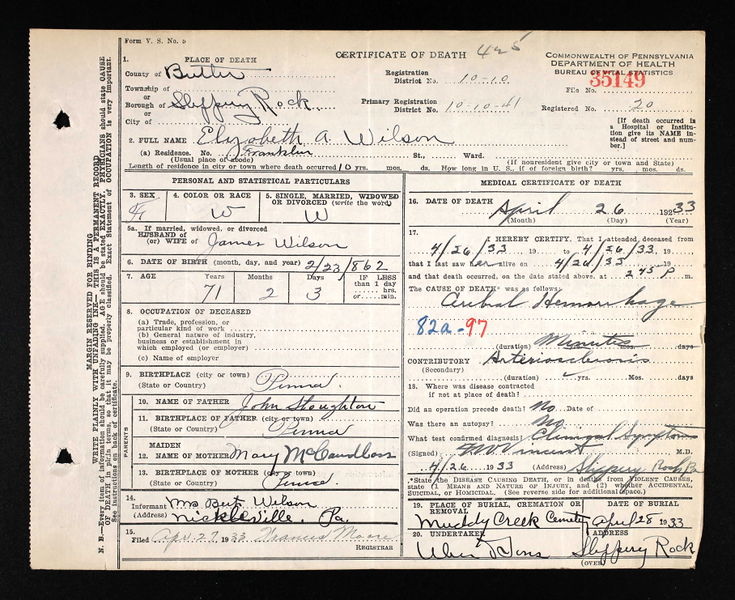 Form V. S. No. 5
CERTIFICATE OF DEATH 425
COMMONWEALTH OF PENNSYLVANIA
DEPARTMENT OF HEALTH
BUREAU OF VITAL STATISTICS
1. PLACE OF DEATH
County of Butler
Township of
or
Borough of Slippery Rock
or
City of
Registration District No. 10-10
Primary Registration District No. 10-10-41
File No. 35149
Registered No. 20
[If death occurred in a Hospital or Institution give its NAME instead of street and number.]
2. FULL NAME Elizabeth A. Wilson
(a) Residence. No. Franklin St., Ward.
(Usual place of abode) (If nonresident give city or town and State)
Length of residence in city or town where death occurred 10 yrs. mos. ds. How long in U. S., if of foreign birth? yrs. mos. ds.
PERSONAL AND STATISTICAL PARTICULARS
3. SEX
4. COLOR OR RACE W
5. SINGLE, MARRIED, WIDOWED OR DIVORCED (write the word) W
5a. If married, widowed, or divorced
HUSBAND of
(or) WIFE of James Wilson
6. DATE OF BIRTH (month, day, and year) 2/23/862
7. AGE Years Months Days IF LESS than 1 day hrs. or min.
71 2 3
8. OCCUPATION OF DECEASED
(a) Trade, profession, or particular kind of work
(b) General nature of industry, business or establishment in which employed (or employer)
(c) Name of employer
9. BIRTHPLACE (city or town)
(State or Country) Penna.
PARENTS
10. NAME OF FATHER John Stoughton
11. BIRTHPLACE OF FATHER (city or town)
(State or Country) Penna
12. MAIDEN NAME OF MOTHER Mary McCandless
13. BIRTHPLACE OF MOTHER (city or town)
(State or Country) Penna.
14. Informant Mrs Bert Wilson
(Address) Nickleville, Pa.
15. Filed Apr. 27 1933 Francis Moore
REGISTRAR
MEDICAL CERTIFICATE OF DEATH
16. DATE OF DEATH April 26 1933
(Month) (Day) (Year)
17. I HEREBY CERTIFY, That I attended deceased from
4/26/33 19 to 4/26/33 19
that I last saw her alive on 4/26/33 19
and that death occurred, on the date stated above, at 2 45 P m.
The CAUSE OF DEATH* was as follows:
Cerebral Hemorrhage
82a-97
(duration) Minutes mos. days
CONTRIBUTORY Arteriosclerosis
(Secondary)
(duration) yrs. mos. days
18. Where was disease contracted
if not at place of death?
Did an operation precede death? No Date of
Was there an autopsy? No
What test confirmed diagnosis? Clinical Symptoms
(Signed) Vincent M.D.
4/26 1933 (Address) Slippery Rock Pa
*State the DISEASE CAUSING DEATH, or in deaths from VIOLENT CAUSES, state (1) MEANS AND NATURE OF INJURY, and (2) whether ACCIDENTAL, SUICIDAL, or HOMICIDAL. (See reverse side for additional space.)
19. PLACE OF BURIAL, CREMATION OR REMOVAL DATE OF BURIAL
Muddy Creek Cemetery April 28 1933
20. UNDERTAKER ADDRESS
& Sons Slippery Rock
(OVER)
MARGIN RESERVE FOR BINDING
WRITE PLAINLY WITH UNFADING INK—THIS IS A PERMANENT RECORD
N. B.—Every item of information should be carefully supplied. AGE should be stated EXACTLY. PHYSICIANS should state CAUSE OF DEATH in plain terms, so that it may be properly classified. Exact Statement of OCCUPATION is very important. See instructions on back of certificate.